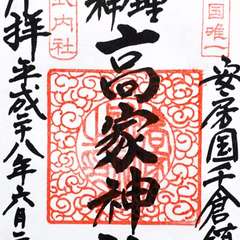 国唯一
安房国千倉鎮
理
神
高家神
式内社
拝
平成廿八年六月